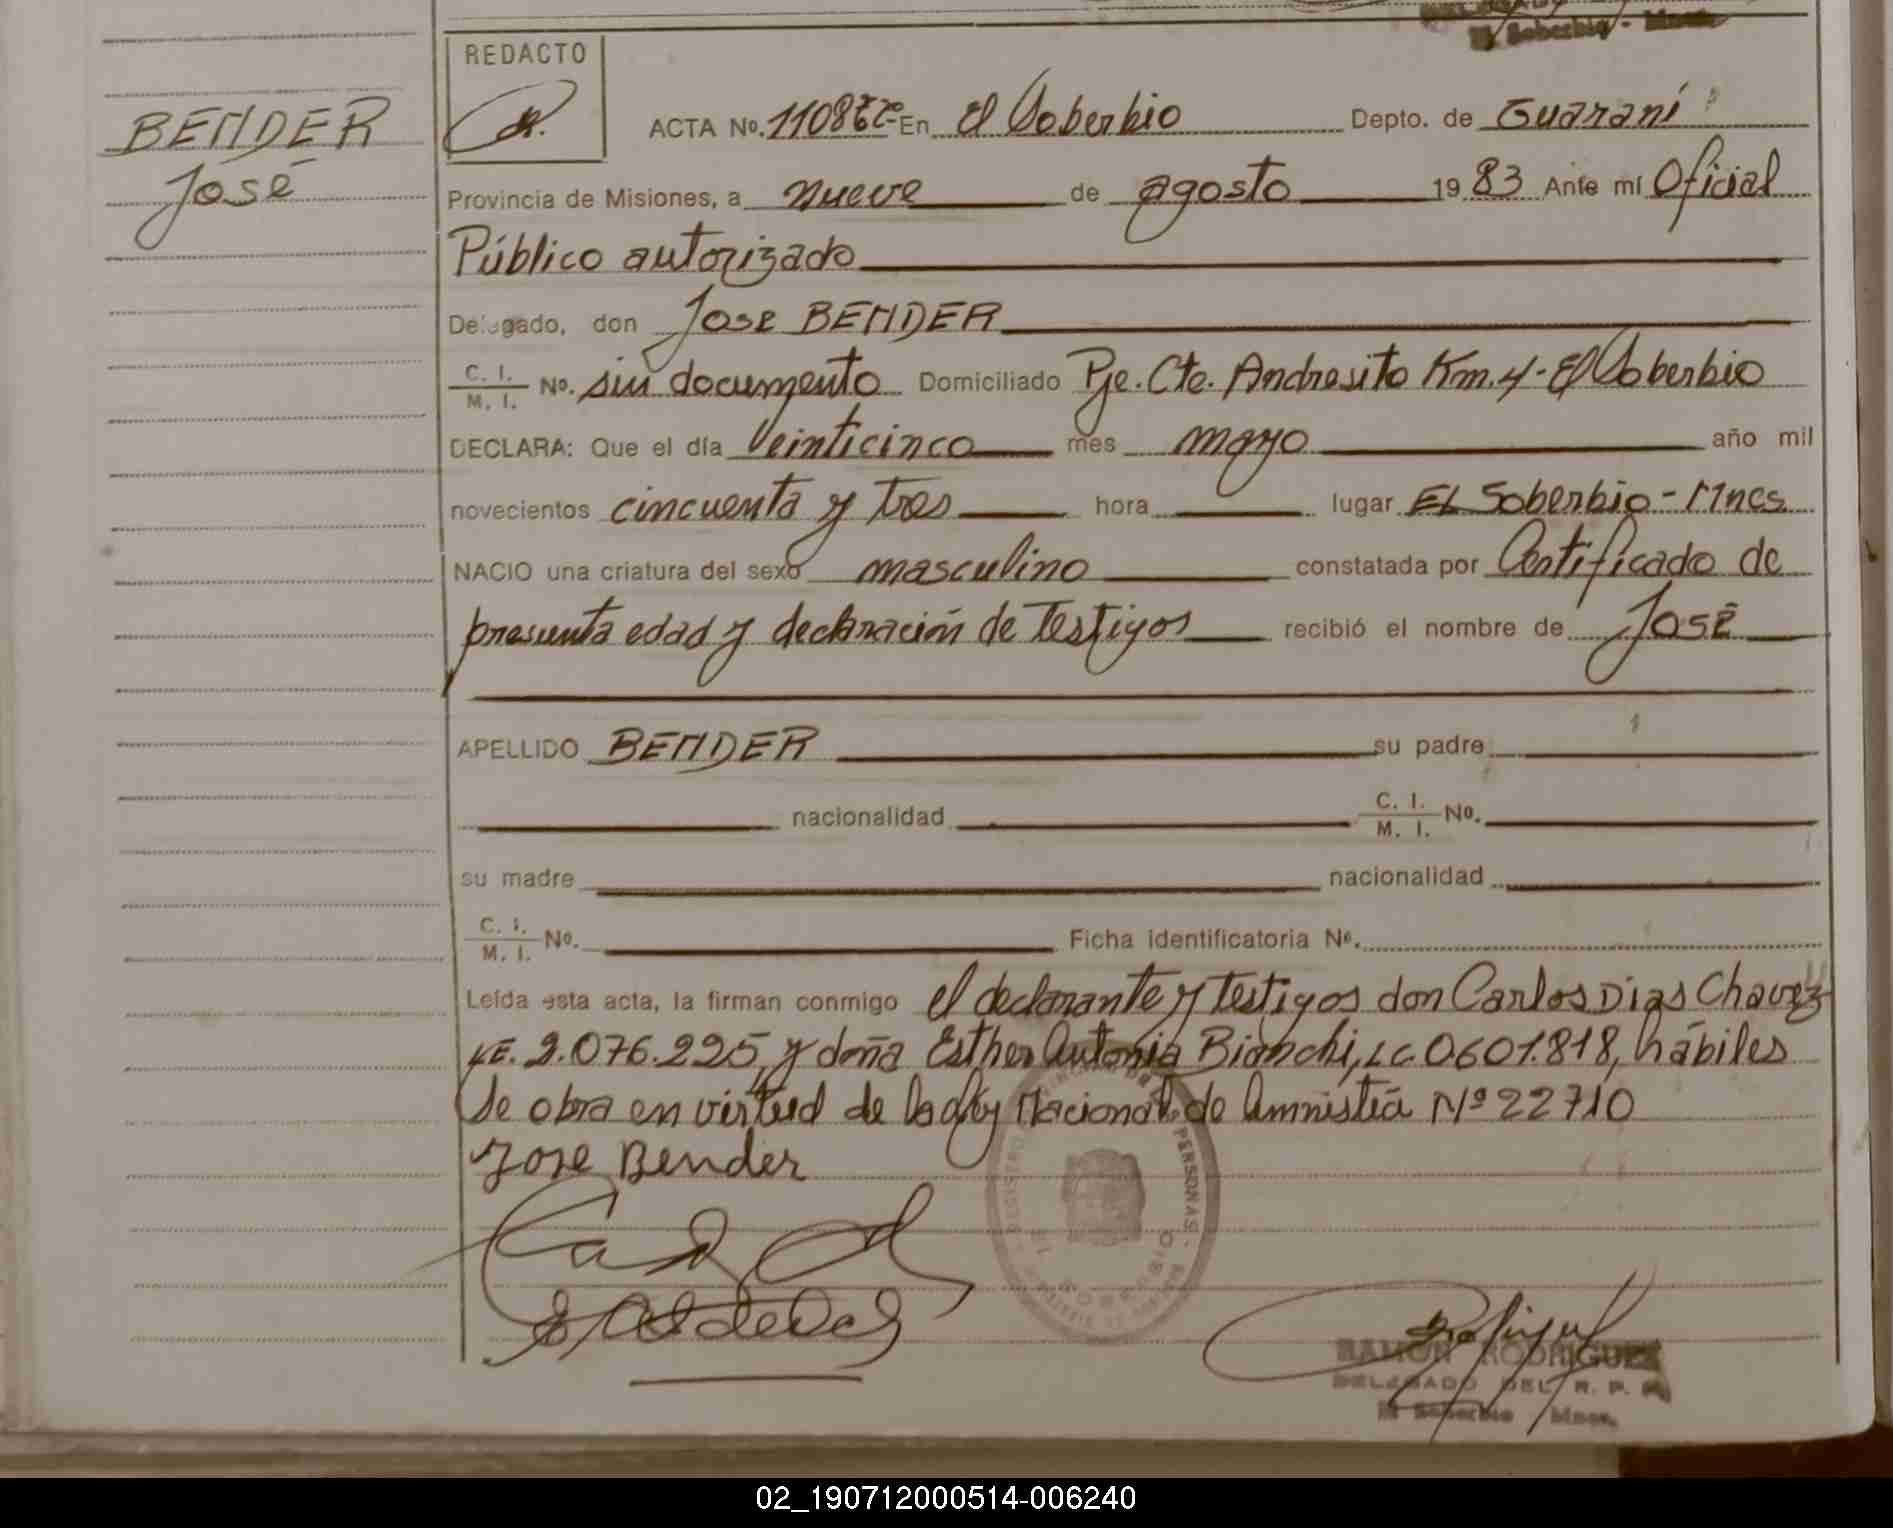 El Soberbio - Mnes.
REDACTO
BENDER
José
ACTA No. 1108 En El Soberbio Depto. de Guaraní
Provincia de Misiones, a nueve de agosto 19 83 Ante mí Oficial
Público autorizado
Delegado, don José BENDER
C. I. / M. I. No. sin documento Domiciliado Pje. Cte. Andresito Km. 4 - El Soberbio
DECLARA: Que el día Veinticinco mes mayo año mil
novecientos cincuenta y tres hora lugar EL Soberbio - Mnes
NACIO una criatura del sexo masculino constatada por Certificado de
presunta edad y declaración de Testigos recibió el nombre de José
APELLIDO BENDER su padre
nacionalidad C. I. / M. I. No.
su madre nacionalidad
C. I. / M. I. No. Ficha identificatoria No.
Leída esta acta, la firman conmigo el declarante y testigos don Carlos Dias Chavez
LE. 2.076.225, y doña Esther Antonia Bianchi, LC. 0.601.818, hábiles
Se obra en virtud de la ley Nacional de Amnistía Nº 22710
Jose Bender
PERSONAS
EL SOBERBIO
RAMON RODRIGUEZ
DELEGADO DEL R. P. P.
El Soberbio Mnes.
02_190712000514-006240